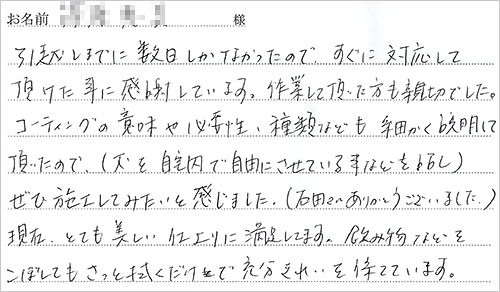 お名前 様
引越しまでに数日しかなかったので、すぐに対応して
頂けた事に感謝しています。作業して頂いた方も親切でした。
コーティングの意味や必要性、種類なども細かく説明して
頂いたので、(犬を自宅内で自由にさせている事なども話し)
ぜひ施工してみたいと感じました。(石田さんありがとうございました。)
現在、とても美しい仕上りに満足してます。飲み物などを
こぼしてもさっと拭くだけで充分きれいを保てています。